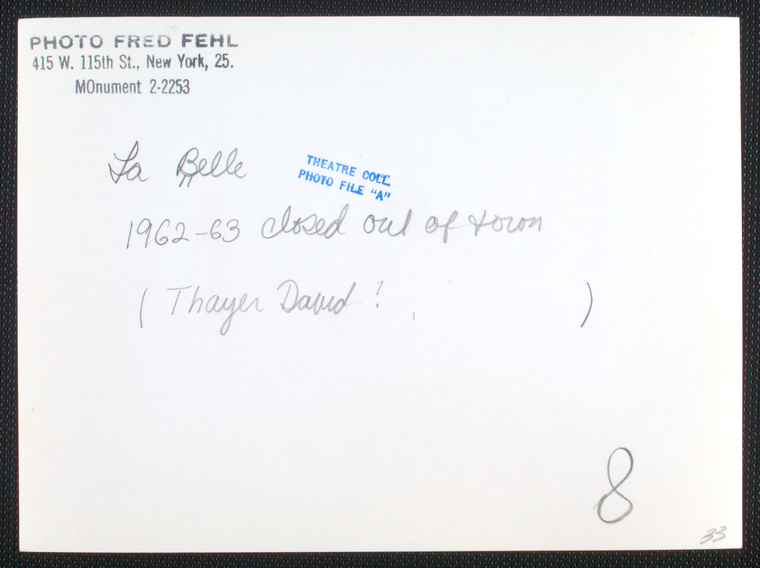 PHOTO FRED FEHL
415 W. 115th St., New York, 25.
MOnument 2-2253
La Belle
THEATRE COLL.
PHOTO FILE "A"
1962-63 closed out of town
(Thayer David? )
8
33